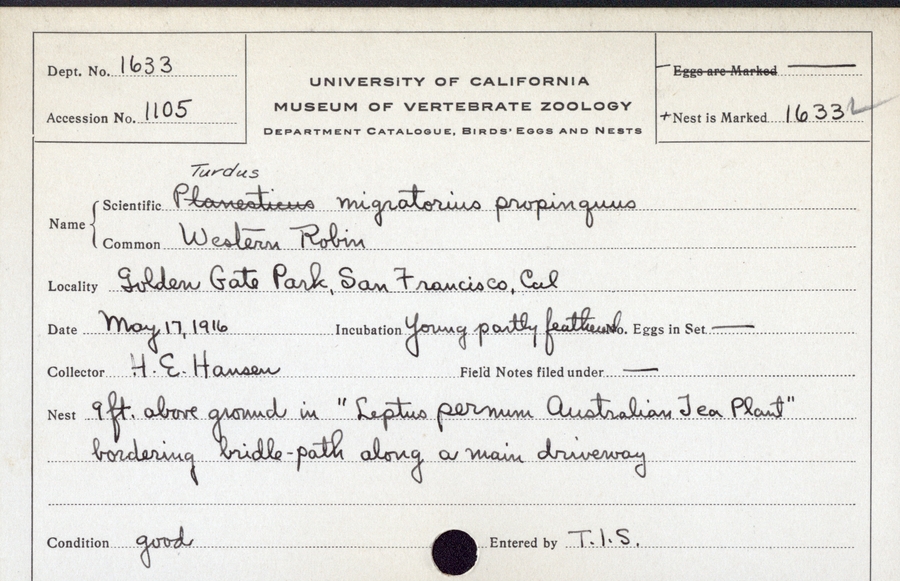 Dept. No. 1633
Accession No. 1105
UNIVERSITY OF CALIFORNIA
MUSEUM OF VERTEBRATE ZOOLOGY
DEPARTMENT CATALOGUE, BIRDS' EGGS AND NESTS
Eggs are Marked —
+ Nest is Marked 1633
Turdus
Name
Scientific Planesticus migratorius propinquus
Common Western Robin
Locality Golden Gate Park, San Francisco, Cal
Date May 17, 1916 Incubation Young partly feathered No. Eggs in Set —
Collector H. E. Hansen Field Notes filed under —
Nest 9ft. above ground in "Leptus pernum Australian Tea Plant"
bordering bridle-path along a main driveway
Condition good Entered by T.I.S.